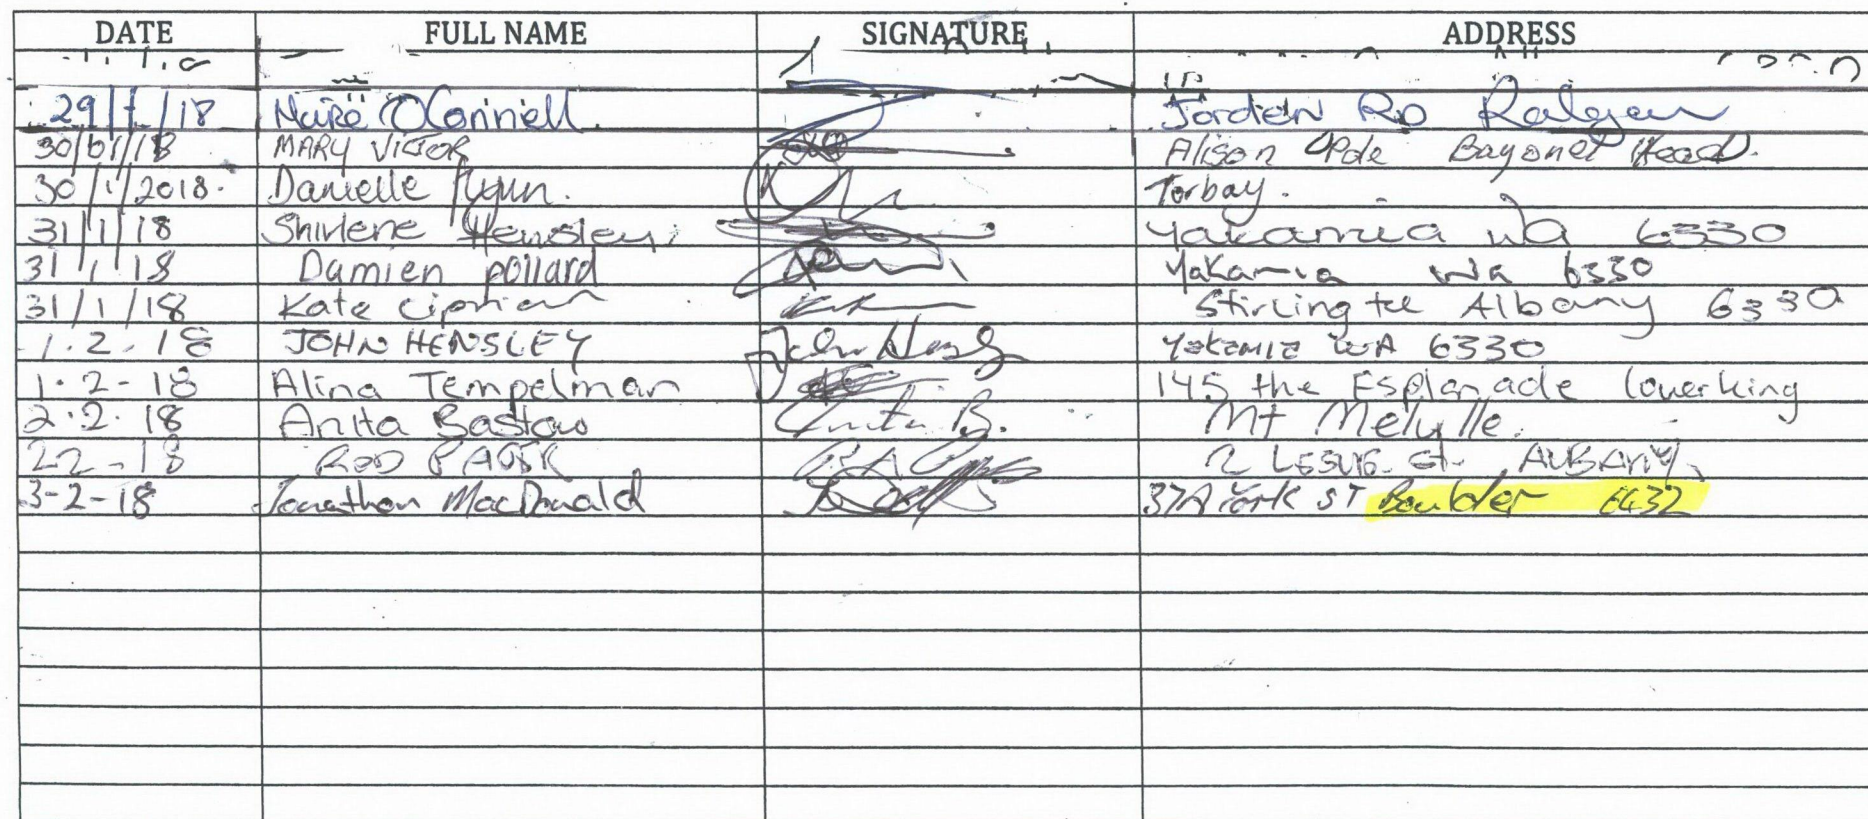 DATE FULL NAME SIGNATURE ADDRESS
29/1/18 Maire O'Connell Jorden RD Kalgan
30/01/18 MARY VICTOR Alison Pde Bayonet Head.
30/1/2018. Danielle Flynn. Torbay.
31/1/18 Shirlene Hensley. Yakamia WA 6330
31/1/18 Damien pollard Yakamia Wa 6330
31/1/18 Kate Stirling tce Albany 6330
1.2.18 JOHN HENSLEY John Hensley Yakamia WA 6330
1.2-18 Alina Tempelman 145 the Esplanade lowerking
2.2.18 Anita Bastow Anita B. Mt Melville.
22-18 ROD 2 LESLIE St. ALBANY,
3-2-18 Jonathon MacDonald 37A York ST Boulder 6432